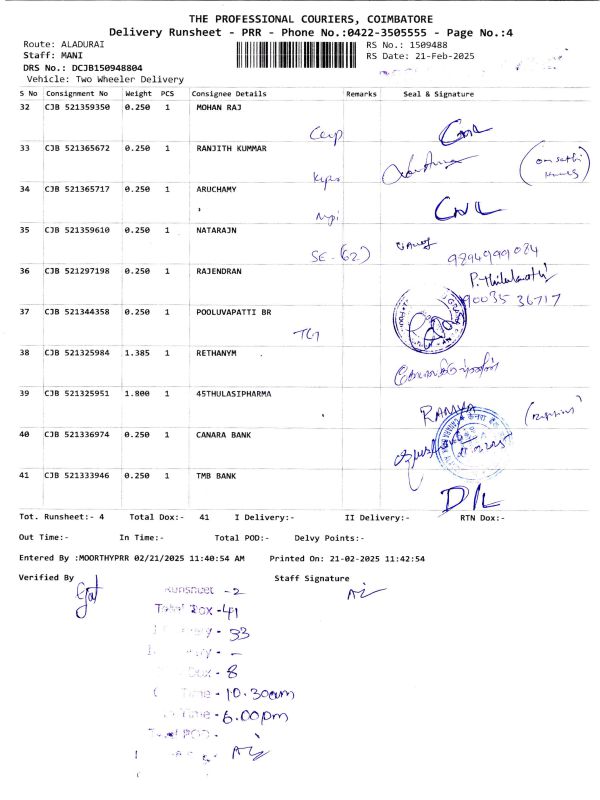 THE PROFESSIONAL COURIERS, COIMBATORE
Delivery Runsheet - PRR - Phone No.:0422-3505555 - Page No.:4
Route: ALADURAI
RS No.: 1509488
Staff: MANI
RS Date: 21-Feb-2025
DRS No.: DCJB150948804
Vehicle: Two Wheeler Delivery
S No Consignment No Weight PCS Consignee Details Remarks Seal & Signature
32 CJB 521359350 0.250 1 MOHAN RAJ
33 CJB 521365672 0.250 1 RANJITH KUMMAR
34 CJB 521365717 0.250 1 ARUCHAMY
35 CJB 521359610 0.250 1 NATARAJN
SE-(62)
9894999084
36 CJB 521297198 0.250 1 RAJENDRAN
90035 36717
37 CJB 521344358 0.250 1 POOLUVAPATTI BR
38 CJB 521325984 1.385 1 RETHANYM
39 CJB 521325951 1.800 1 45THULASIPHARMA
RAMYA
40 CJB 521336974 0.250 1 CANARA BANK
41 CJB 521333946 0.250 1 TMB BANK
D/L
Tot. Runsheet:- 4 Total Dox:- 41 I Delivery:- II Delivery:- RTN Dox:-
Out Time:- In Time:- Total POD:- Delvy Points:-
Entered By :MOORTHYPRR 02/21/2025 11:40:54 AM Printed On: 21-02-2025 11:42:54
Verified By Staff Signature
Runsheet - 2
Total Dox - 41
- 33
- -
Dox - 8
Time - 10.30am
Time - 6.00pm
Total POD -